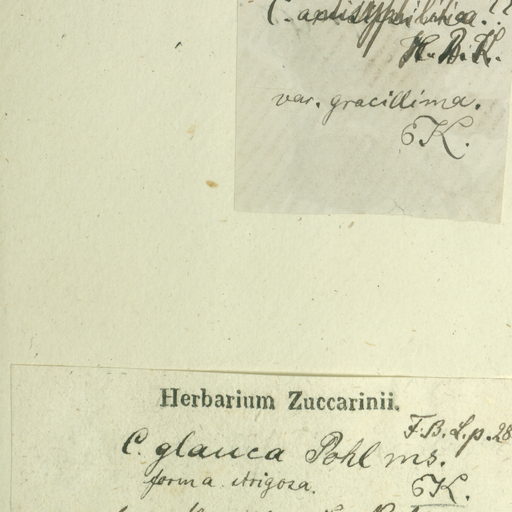 C. antisyphilitica!!
H.B.K.
var. gracillima.
6K.
Herbarium Zuccarinii.
F.B.L.p.28
C. glauca Pohl ms.
forma strigosa.
6K.